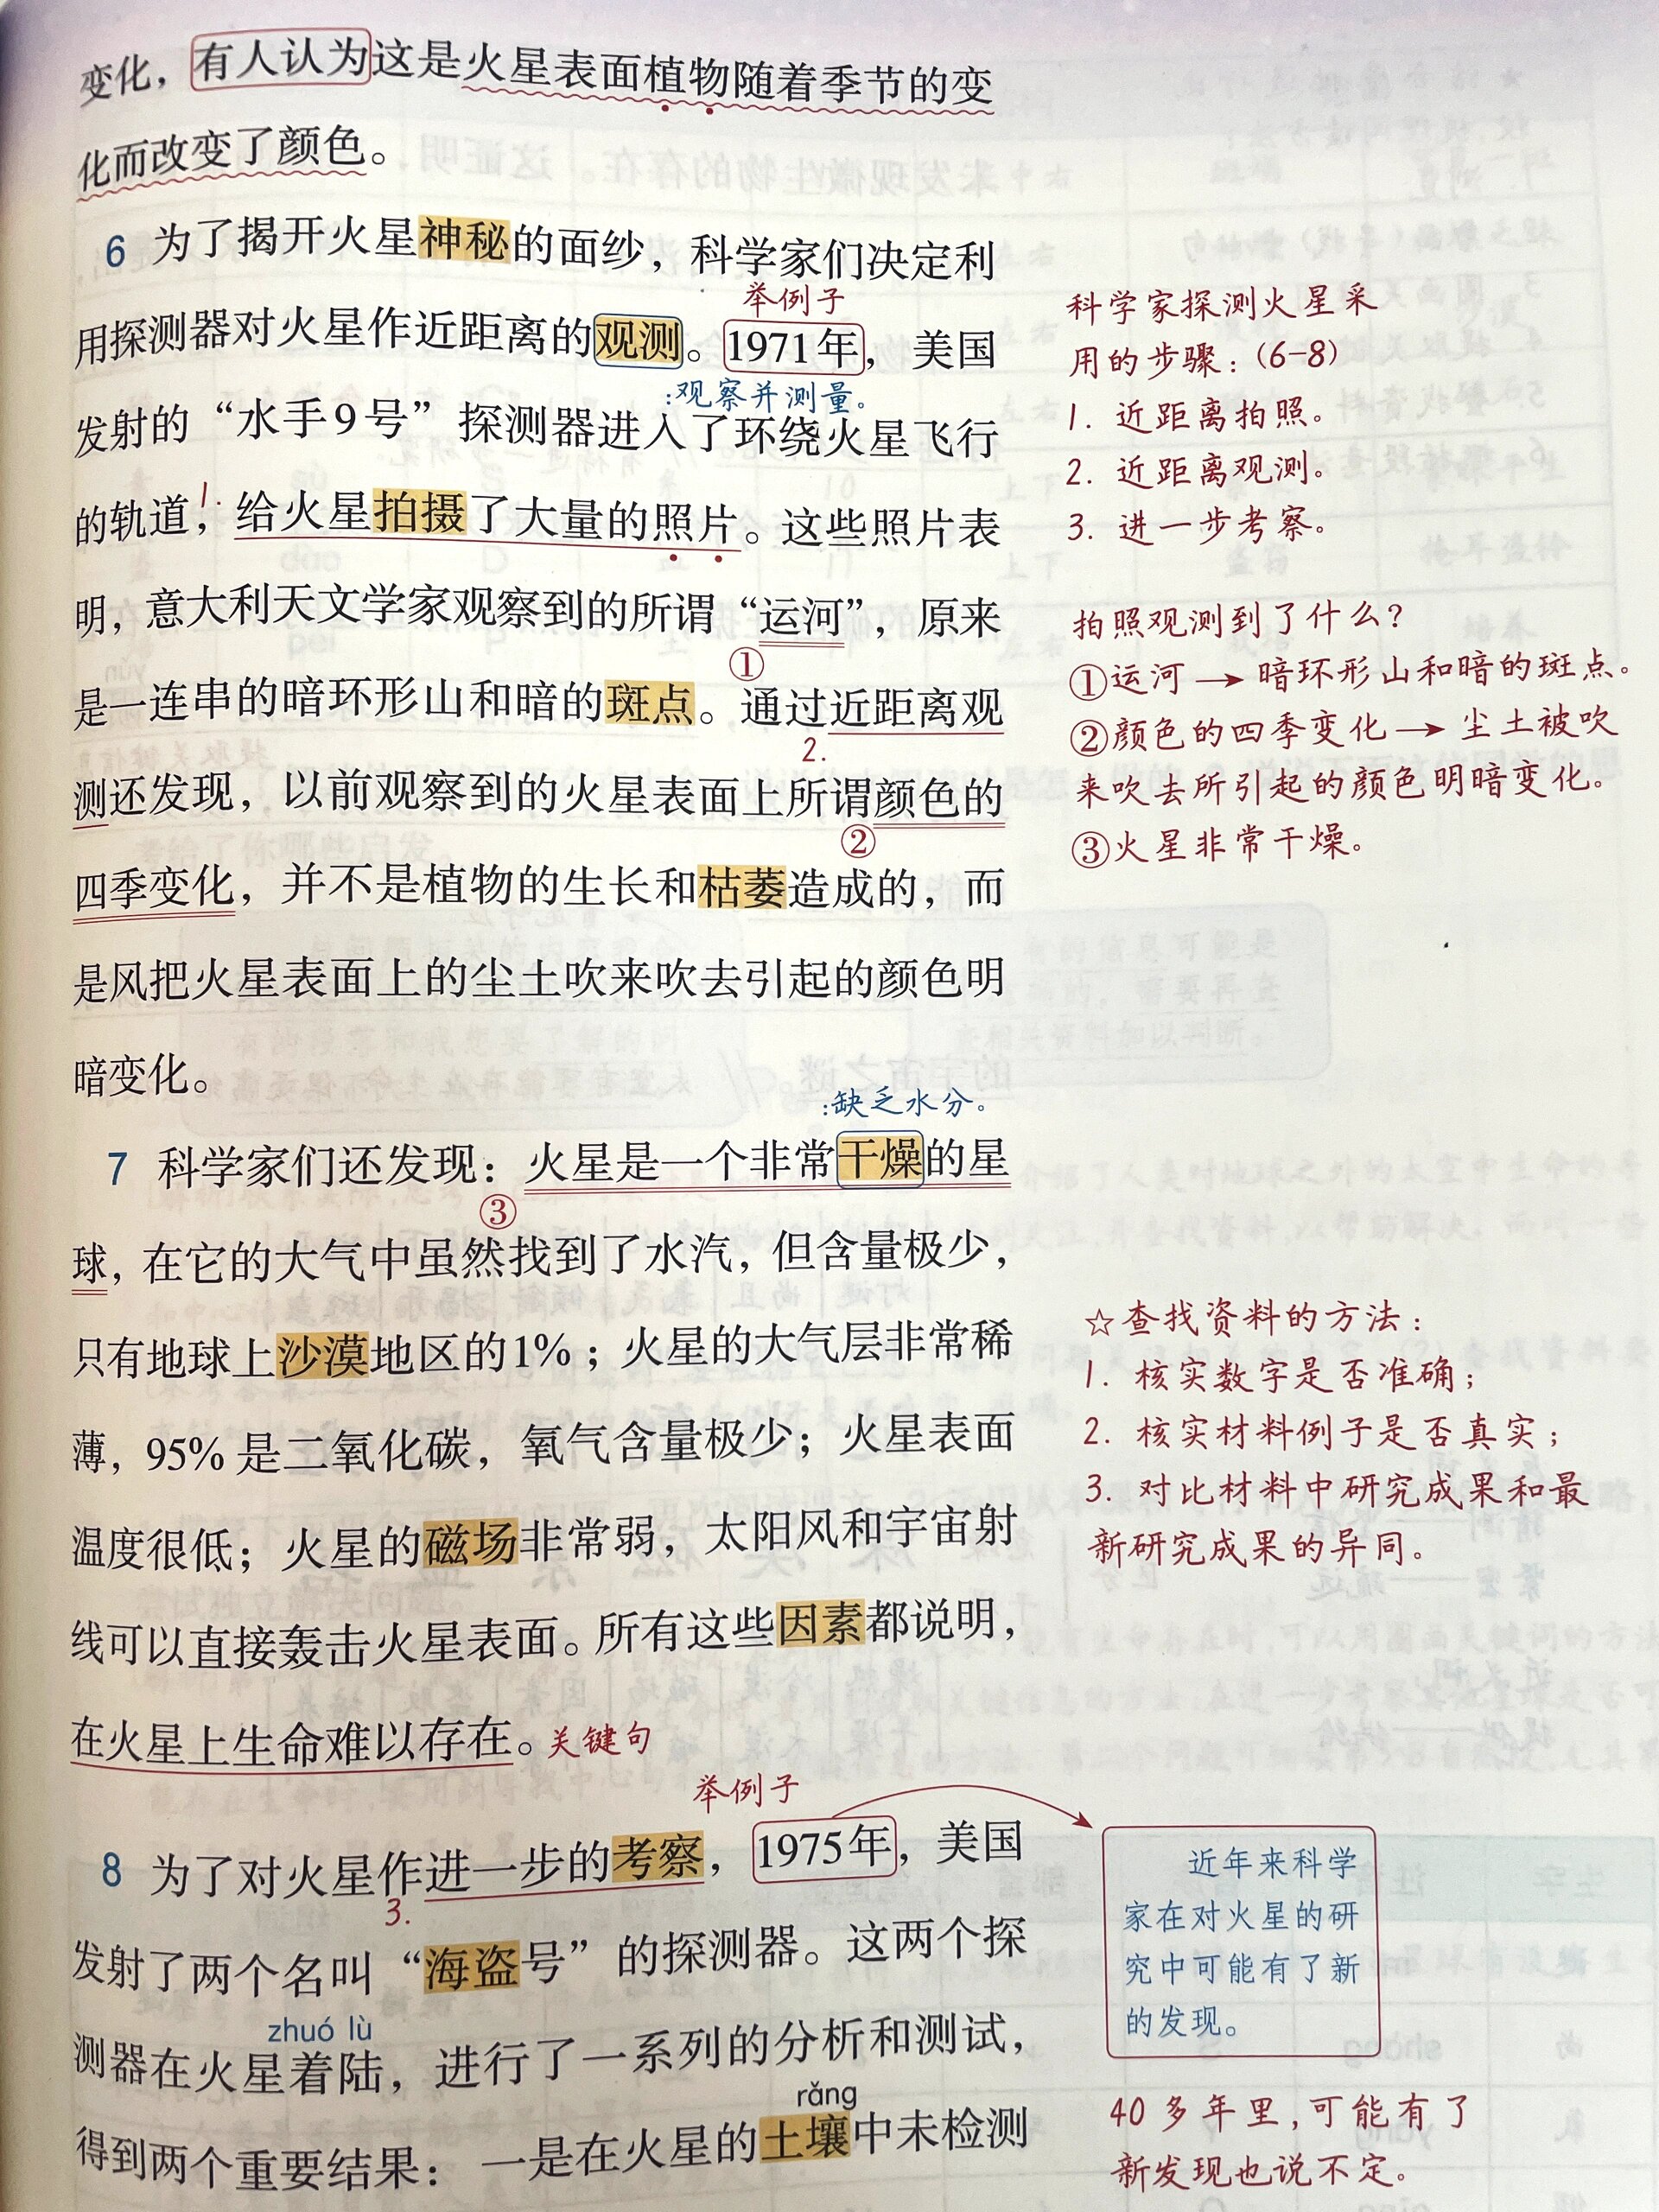 变化，有人认为这是火星表面植物随着季节的变
化而改变了颜色。
6 为了揭开火星神秘的面纱，科学家们决定利
举例子
用探测器对火星作近距离的观测。1971年，美国
：观察并测量。
发射的“水手9号”探测器进入了环绕火星飞行
1.
的轨道，给火星拍摄了大量的照片。这些照片表
明，意大利天文学家观察到的所谓“运河”，原来
①
是一连串的暗环形山和暗的斑点。通过近距离观
2.
测还发现，以前观察到的火星表面上所谓颜色的
②
四季变化，并不是植物的生长和枯萎造成的，而
是风把火星表面上的尘土吹来吹去引起的颜色明
暗变化。
：缺乏水分。
7 科学家们还发现：火星是一个非常干燥的星
③
球，在它的大气中虽然找到了水汽，但含量极少，
只有地球上沙漠地区的1%；火星的大气层非常稀
薄，95%是二氧化碳，氧气含量极少；火星表面
温度很低；火星的磁场非常弱，太阳风和宇宙射
线可以直接轰击火星表面。所有这些因素都说明，
在火星上生命难以存在。关键句
举例子
8 为了对火星作进一步的考察，1975年，美国
3.
发射了两个名叫“海盗号”的探测器。这两个探
zhuó lù
测器在火星着陆，进行了一系列的分析和测试，
rǎng
得到两个重要结果：一是在火星的土壤中未检测
科学家探测火星采
用的步骤：(6-8)
1. 近距离拍照。
2. 近距离观测。
3. 进一步考察。
拍照观测到了什么？
①运河→暗环形山和暗的斑点。
②颜色的四季变化→尘土被吹
来吹去所引起的颜色明暗变化。
③火星非常干燥。
☆查找资料的方法：
1. 核实数字是否准确；
2. 核实材料例子是否真实；
3. 对比材料中研究成果和最
新研究成果的异同。
近年来科学
家在对火星的研
究中可能有了新
的发现。
40多年里，可能有了
新发现也说不定。